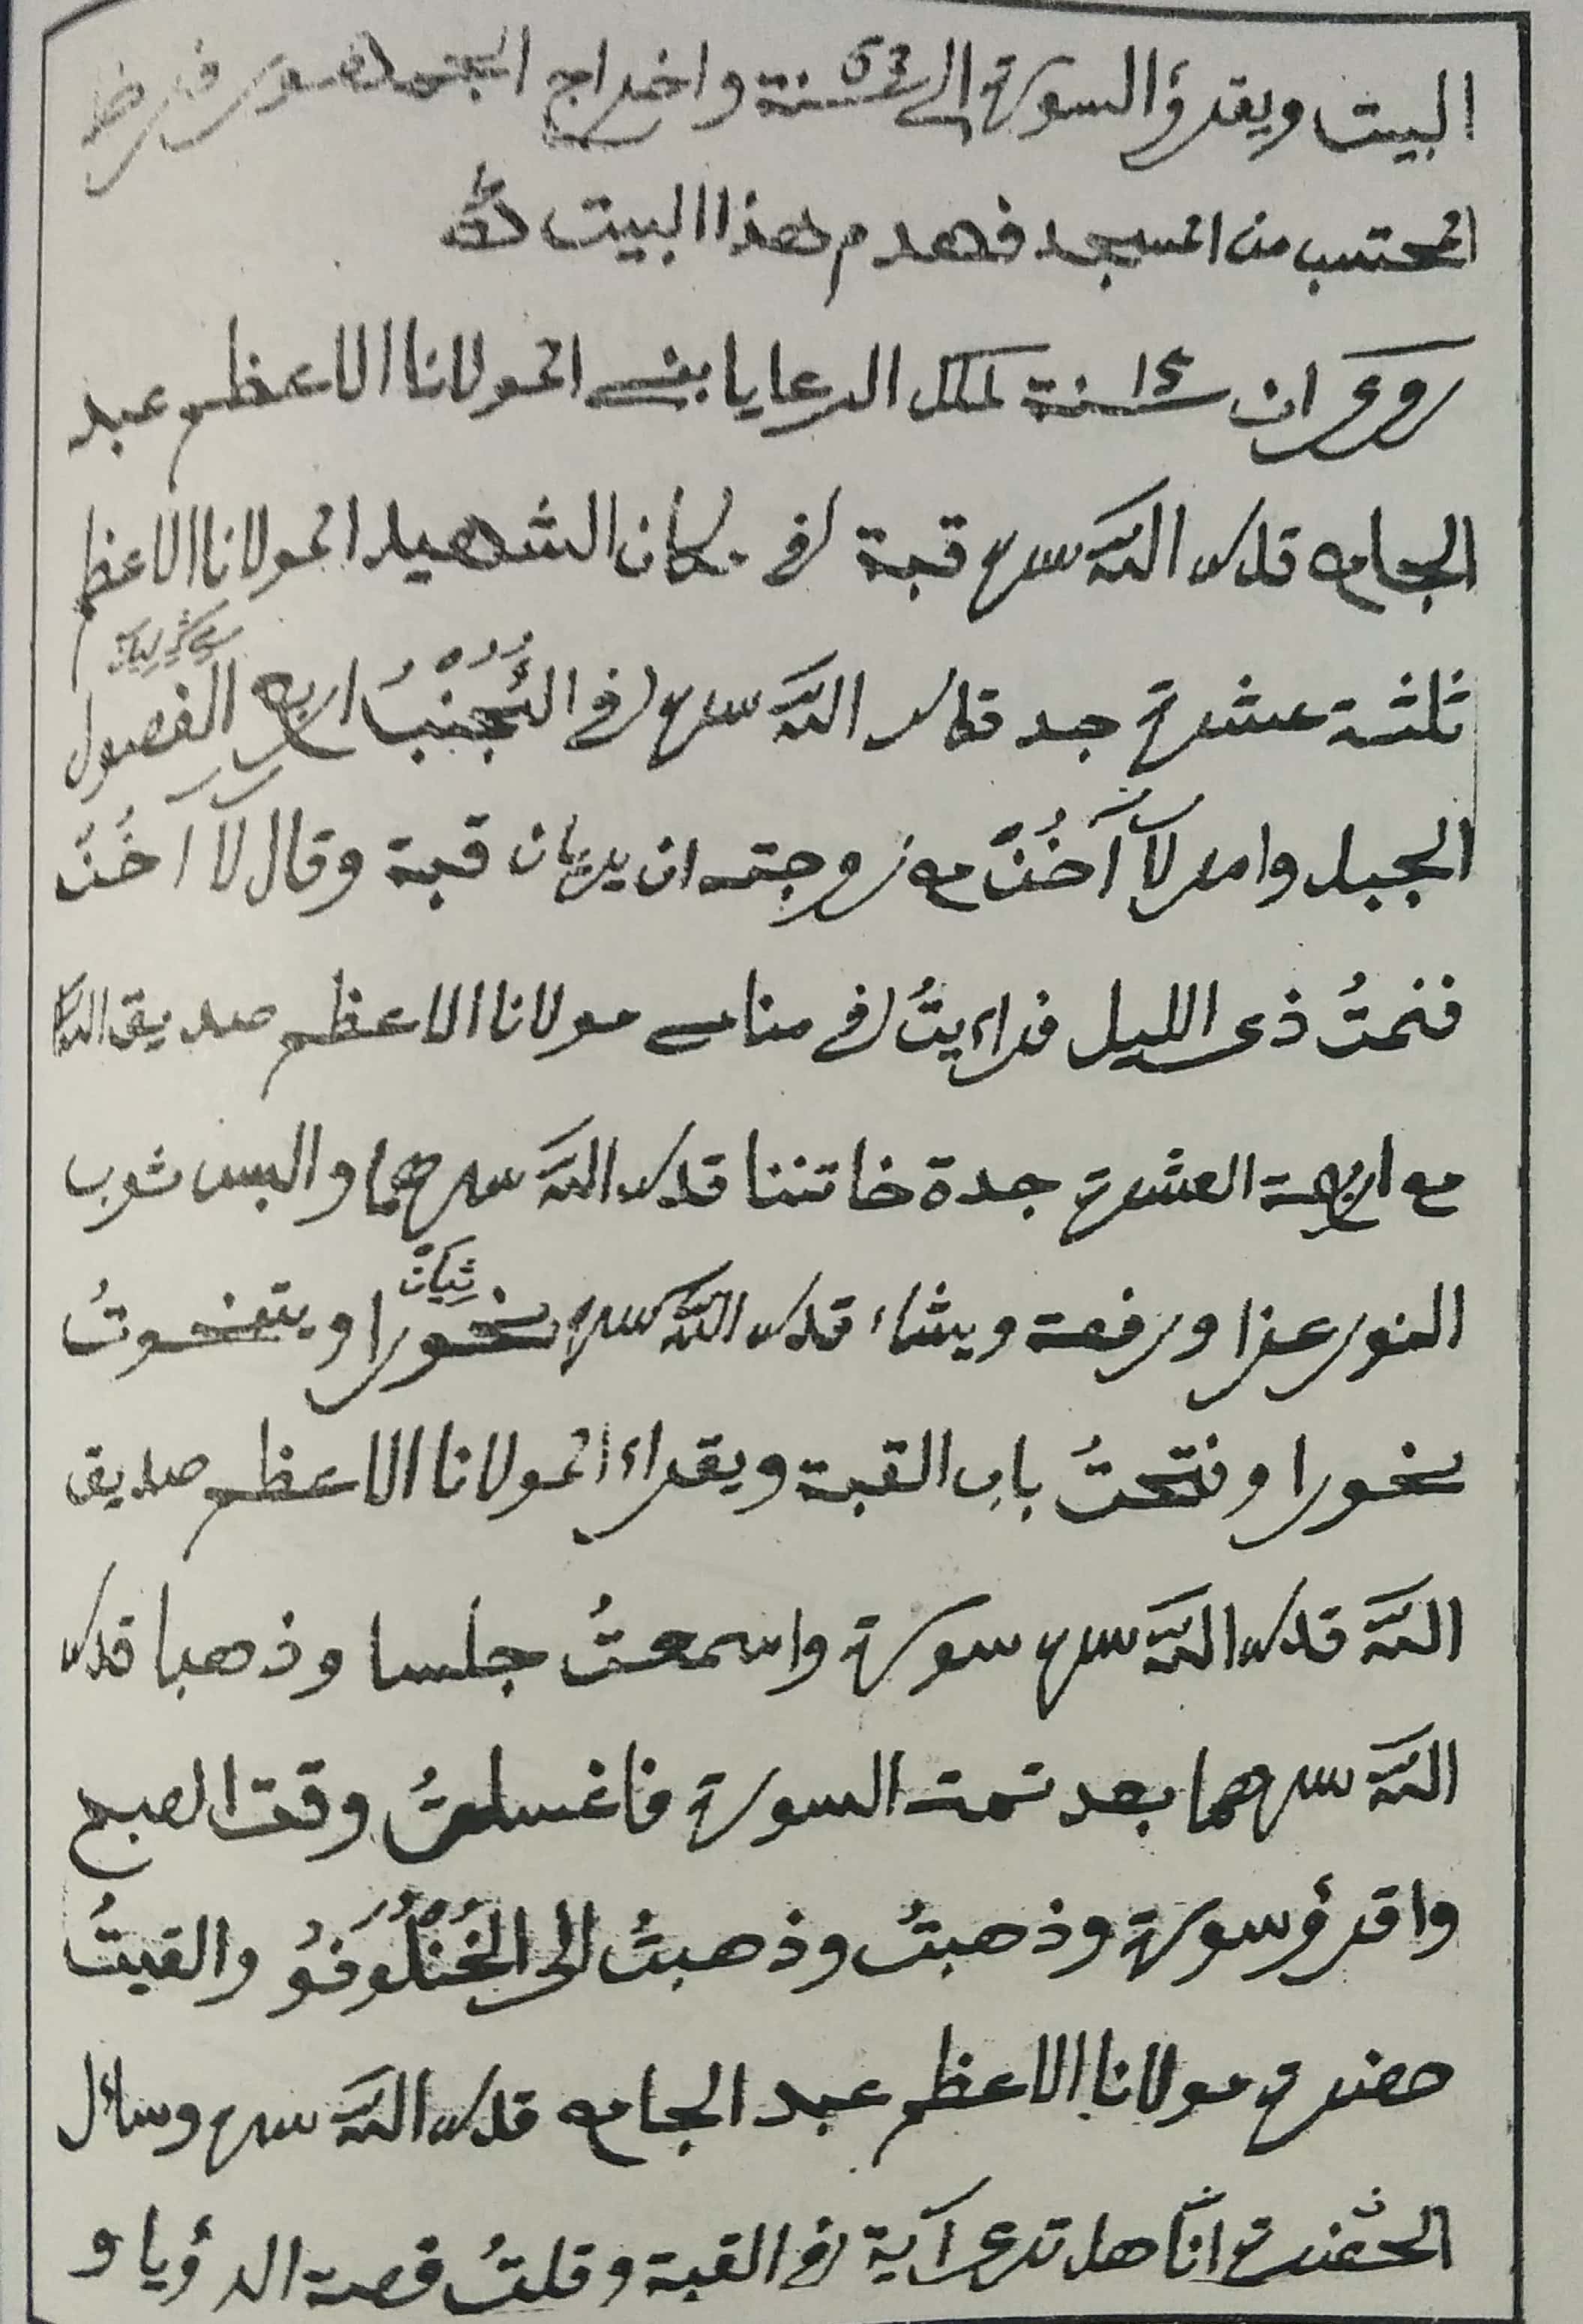 البيت ويقرؤ السورة الى 53 سنة واخراج الجمهور فرض
المحتسب من المسجد فهدم هذا البيت
روى ان سنة لملك الرعايا بنى المولانا الاعظم عبد
الجامع قدس الله سره قبة فى مكان الشهيد المولانا الاعظم
ثلثة عشرة جد قدس الله سره فى اربع الفصول
الجبل وامر لَآ آخُنْ مع زوجته ان يريان قبة وقال لَآ آخُنْ
فنمتُ ذى الليل فراءيتُ فى منامى مولانا الاعظم صديق الله
مع اربعة العشرة جدة خاتننا قدس الله سرهما والبس ثوب
النور عزا ورفعة ويشاء قدس الله سره بخورا ويتفخوتُ
بخورا وفتحتُ باب القبة ويقراء المولانا الاعظم صديق
الله قدس الله سره سورة واسمعتُ جلسا وذهبا قدس
الله سرهما بعد تمت السورة فاغسلتُ وقت الصبح
واقرؤ سورة وذهبتُ وذهبتُ الى والقيتُ
حضرة مولانا الاعظم عبد الجامع قدس الله سره وسائل
الحضرة انّا هل ترى آية فى القبة وقلتُ قصة الرؤيا و